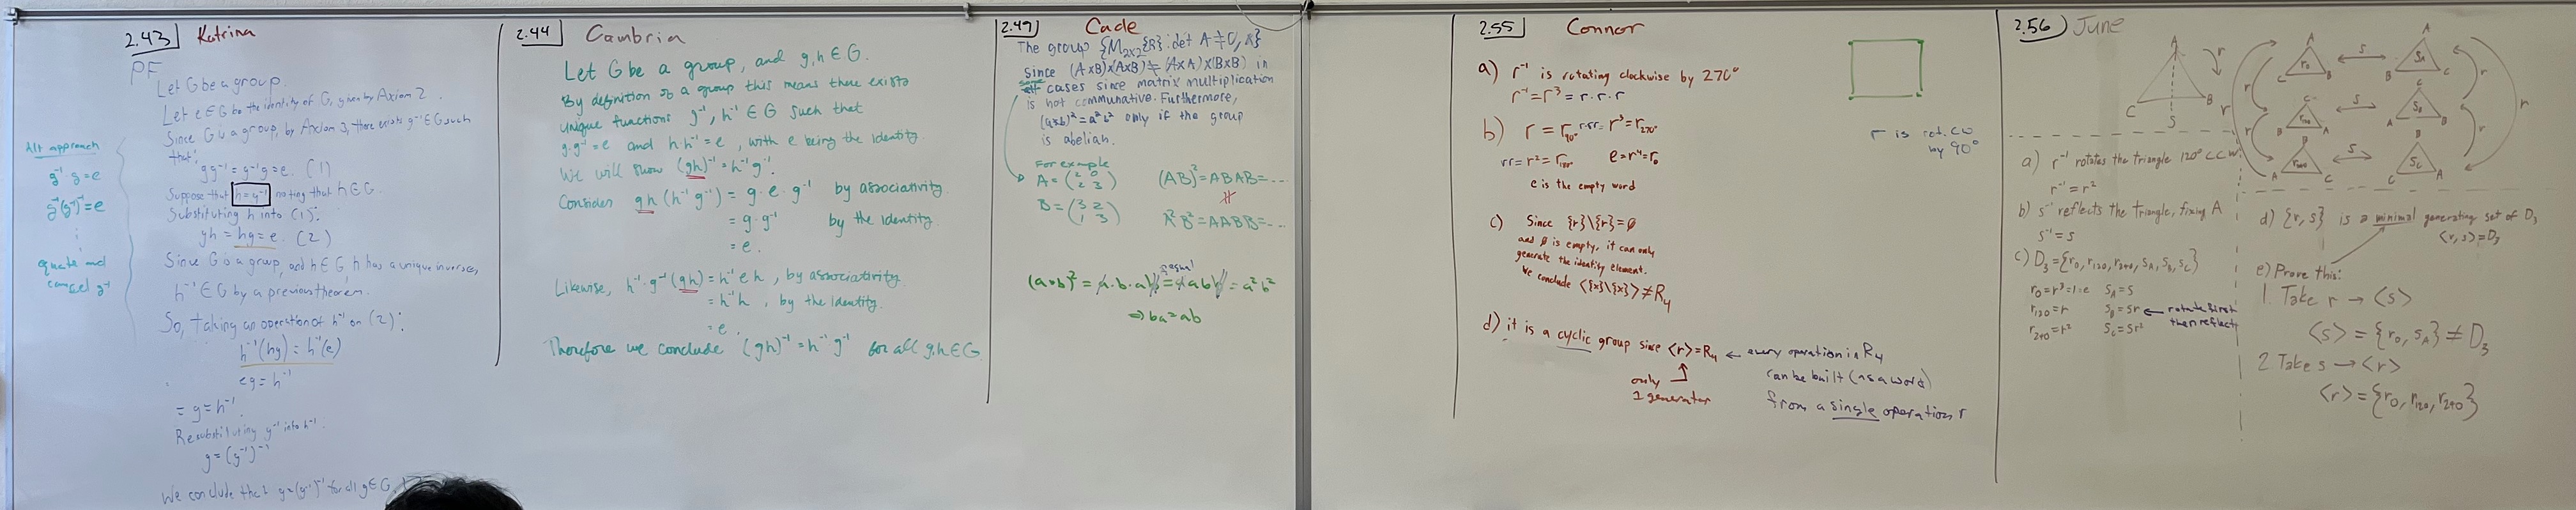 2.43 Katrina
PF
Let G be a group.
Let e∈G be the identity of G, given by Axiom 2.
Since G is a group, by Axiom 3, there exists g⁻¹∈G such
that:
gg⁻¹ = g⁻¹g = e. (1)
Suppose that h=g⁻¹ noting that h∈G.
Substituting h into (1):
gh = hg = e. (2)
Since G is a group, and h∈G, h has a unique inverse,
h⁻¹∈G by a previous theorem.
So, taking an operation of h⁻¹ on (2):
h⁻¹(hg) = h⁻¹(e)
eg = h⁻¹
= g = h⁻¹.
Resubstituting g⁻¹ into h⁻¹:
g = (g⁻¹)⁻¹
We conclude that g=(g⁻¹)⁻¹ for all g∈G.
Alt approach
g⁻¹g = e
g⁻¹(g⁻¹)⁻¹ = e
⋮
equate and
cancel g⁻¹
2.44 Cambria
Let G be a group, and g,h∈G.
By definition of a group this means there exists
unique functions g⁻¹, h⁻¹ ∈ G such that
g·g⁻¹ = e and h·h⁻¹ = e, with e being the identity.
We will show (gh)⁻¹ = h⁻¹g⁻¹.
Consider gh(h⁻¹g⁻¹) = g·e·g⁻¹ by associativity.
= g·g⁻¹ by the identity.
= e.
Likewise, h⁻¹·g⁻¹(gh) = h⁻¹eh, by associativity.
= h⁻¹h, by the identity.
= e.
Therefore we conclude (gh)⁻¹ = h⁻¹g⁻¹ for all g,h∈G
2.49 Cade
The group {M₂ₓ₂(ℝ): det A ≠ 0, ×}
since (A×B)×(A×B) ≠ (A×A)×(B×B) in
some cases since matrix multiplication
is not communative. Furthermore,
(a*b)² = a²b² only if the group
is abelian.
For example
A = (2 0
2 3)
B = (3 2
1 3)
(AB)² = ABAB = ...
≠
A²B² = AABB = ...
(a*b)² = a·b·ab = aabb = a²b²
⇒ ba = ab
2.55 Connor
a) r⁻¹ is rotating clockwise by 270°
r⁻¹ = r³ = r·r·r
b) r = r₉₀° r·r·r = r³ = r₂₇₀°
rr = r² = r₁₈₀° e = r⁴ = r₀
e is the empty word
c) Since {r}\{r} = ∅
and ∅ is empty, it can only
generate the identity element.
We conclude <{x}\{x}> ≠ R₄
d) it is a cyclic group since <r> = R₄ ← every operation in R₄
can be built (as a word)
from a single operation r
only
1 generator
r is rot. CW
by 90°
2.56 June
A
r
C B
S
a) r⁻¹ rotates the triangle 120° CCW.
r⁻¹ = r²
b) s⁻¹ reflects the triangle, fixing A
s⁻¹ = s
c) D₃ = {r₀, r₁₂₀, r₂₄₀, s_A, s_B, s_C}
r₀ = r³ = 1 = e s_A = s
r₁₂₀ = r s_B = sr ← rotate first
then reflect
r₂₄₀ = r² s_C = sr²
d) {r, s} is a minimal generating set of D₃
<r,s> = D₃
e) Prove this:
1. Take r → <s>
<s> = {r₀, s_A} ≠ D₃
2 Take s → <r>
<r> = {r₀, r₁₂₀, r₂₄₀}